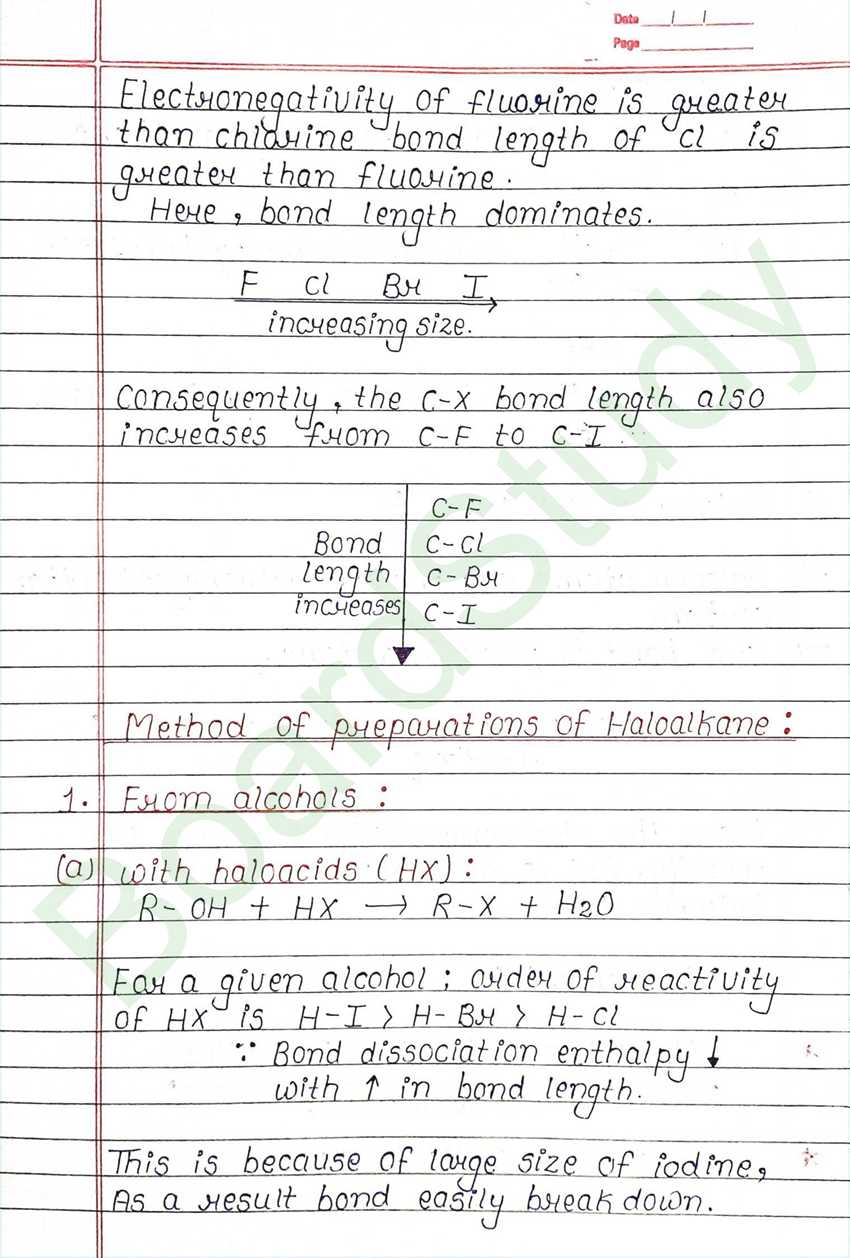 Date / /
Page
Electronegativity of fluorine is greater
than chlorine bond length of Cl is
greater than fluorine.
Here, bond length dominates.
F Cl Br I
increasing size.
Consequently, the C-X bond length also
increases from C-F to C-I.
C-F
Bond C-Cl
length C-Br
increases C-I
Method of preparations of Haloalkane:
1. From alcohols:
(a) with haloacids (HX):
R-OH + HX → R-X + H2O
For a given alcohol; order of reactivity
of HX is H-I > H-Br > H-Cl
∵ Bond dissociation enthalpy ↓
with ↑ in bond length.
This is because of large size of iodine,
As a result bond easily break down.
BoardStudy